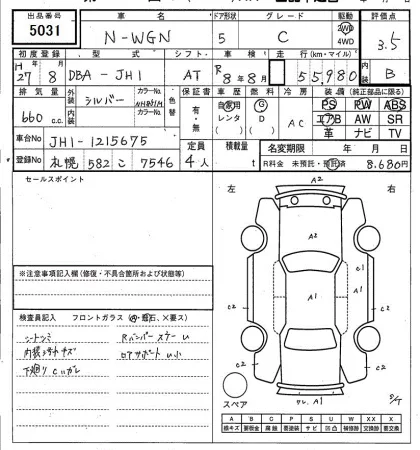 出品番号 車名 ドア形状 グレード 駆動 評価点
5031 N-WGN 5 C 2WD 4WD 3.5
初度登録 型式 シフト 車検 走行(km・マイル) 内装
H 27年 8月 DBA-JH1 AT R8年8月 55,980 B
排気量 外装 シルバー カラーNo. 色替 保証書 車歴 燃料 冷房 装備(純正部品に限る)
660 c.c. 内装 カラーNo. 有・無 自家用 レンタ G D AC PS PW ABS
エアB AW SR
革 ナビ TV
車台No JH1-1215675 定員 積載量 名変期限 年 月 日
登録No 札幌 582 こ 7546 4人 t R料金 未預託・預託済 8.680円
セールスポイント 左 右
A2
A2
C1
A1 A1
C2 C2
C2 C2
※注意事項記入欄(修復・不具合箇所および状態等)
検査員記入 フロントガラス
シートシミ RバンパースケーU
内装コゲキズ ロアサポートU小
下廻りCハガレ
スペア A1
A B C P S U W X XX
線キズ 要板金 腐蝕 要塗装 サビ 凹凸 補修跡 交換跡 要交換